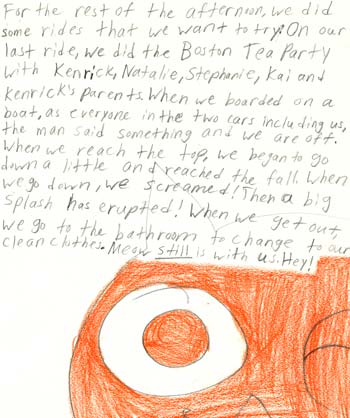 For the rest of the afternoon, we did
some rides that we want to try. On our
last ride, we did the Boston Tea Party
with Kenrick, Natalie, Stephanie, Kai and
Kenrick's parents. When we boarded on a
boat, as everyone in the two cars including us,
the man said something and we are off.
When we reach the top, we began to go
down a little and reached the fall. When
we go down, we screamed! Then a big
splash has erupted! When we get out,
we go to the bathroom to change to our
clean clothes. Meow still is with us. Hey!